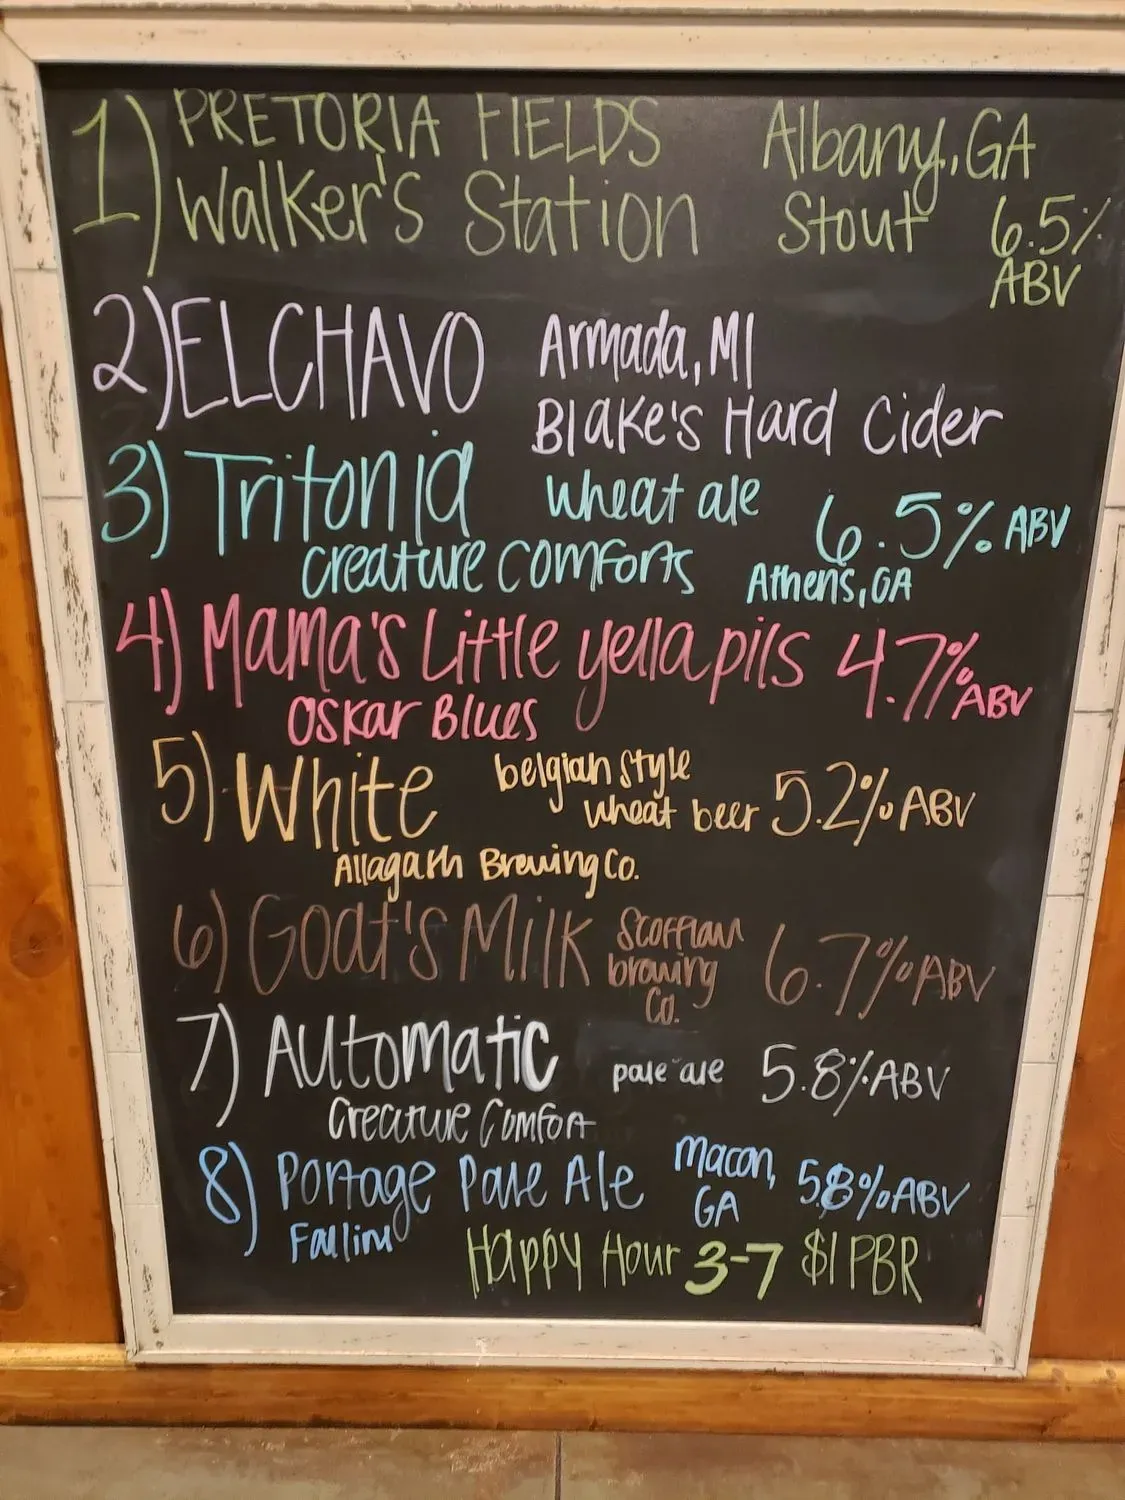 1) PRETORIA FIELDS Albany, GA
Walker's Station Stout 6.5%
ABV
2) ELCHAVO Armada, MI
Blake's Hard Cider
3) Tritonia wheat ale 6.5% ABV
creature comforts Athens, GA
4) Mama's Little yella pils 4.7% ABV
Oskar Blues
5) White belgian style
wheat beer 5.2% ABV
Allagash Brewing Co.
6) Goat's Milk Scofflaw
brewing
Co. 6.7% ABV
7) Automatic pale ale 5.8% ABV
Creature Comfort
8) Portage Pale Ale Macon,
GA 5.8% ABV
Fall line
Happy Hour 3-7 $1 PBR